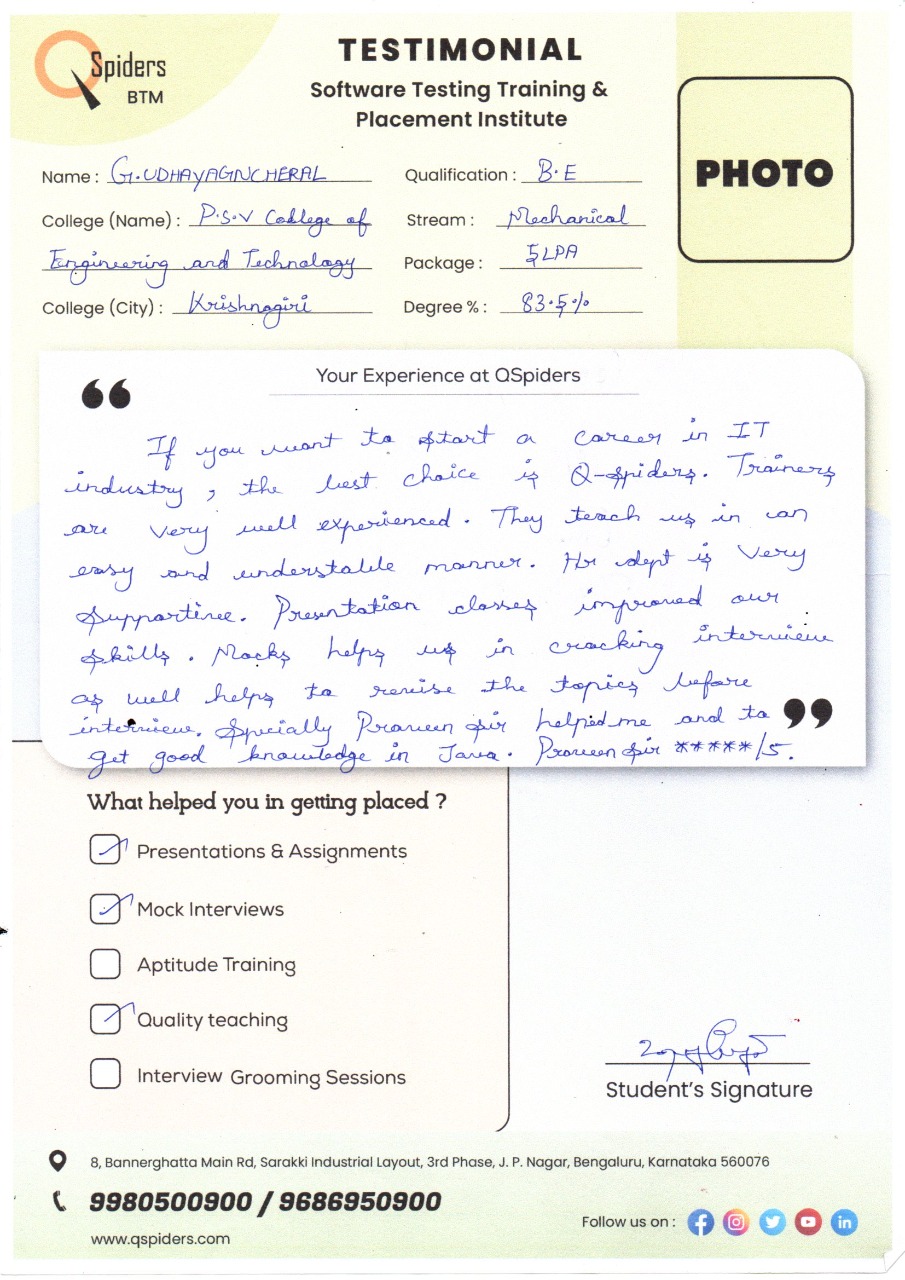 QSpiders
BTM
TESTIMONIAL
Software Testing Training &
Placement Institute
PHOTO
Name : G.UDHAYAGNCHERAL
Qualification : B.E
College (Name) : P.S.V College of
Engineering and Technology
Stream : Mechanical
Package : 5LPA
College (City) : Krishnagiri
Degree % : 83.5%
Your Experience at QSpiders
If you want to start a career in IT
industry, the best choice is Q-spiders. Trainers
are very well experienced. They teach us in an
easy and understable manner. Hr dept is very
supportive. Presentation classes improved our
skills. Mocks helps us in cracking interview
as well helps to revise the topics before
interview. Spcially Praveen sir helped me and to
get good knowledge in Java. Praveen sir *****/5.
What helped you in getting placed ?
Presentations & Assignments
Mock Interviews
Aptitude Training
Quality teaching
Interview Grooming Sessions
Student's Signature
8, Bannerghatta Main Rd, Sarakki Industrial Layout, 3rd Phase, J. P. Nagar, Bengaluru, Karnataka 560076
9980500900 / 9686950900
www.qspiders.com
Follow us on :